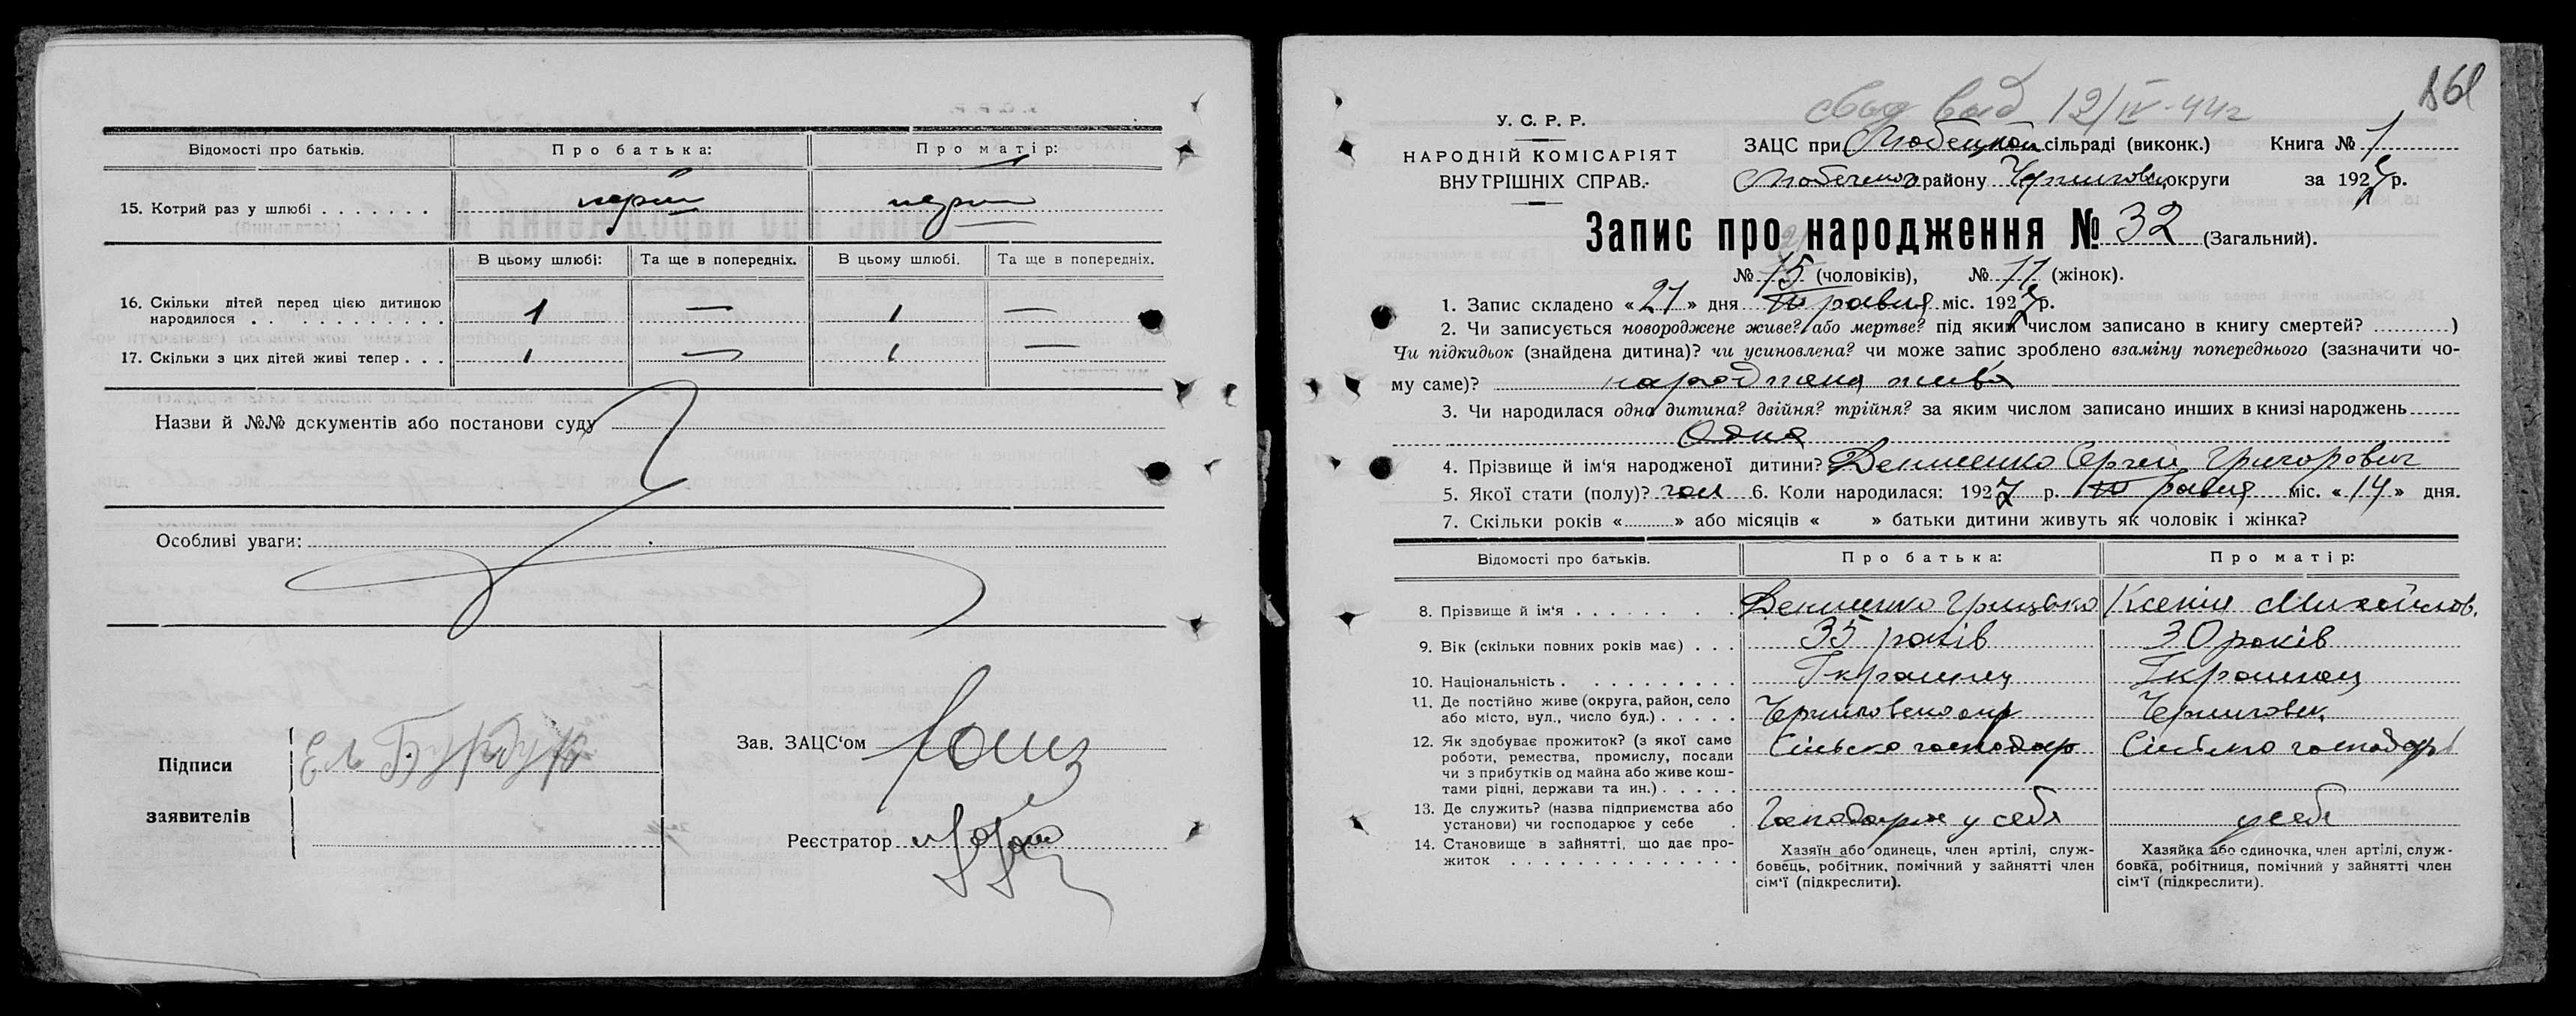 Відомості про батьків. Про батька: Про матір:
15. Котрий раз у шлюбі . . . . . . . перший перший
В цьому шлюбі: Та ще в попередніх. В цьому шлюбі. Та ще в попередніх.
16. Скільки дітей перед цією дитиною
народилося . . . . . . . . . . . 1 — 1 —
17. Скільки з цих дітей живі тепер . . . 1 — 1 —
Назви й №№ документів або постанови суду
Особливі уваги:
Підписи
заявителів
Зав. ЗАЦС'ом
Реєстратор
12/IV-44г
У. С. Р. Р.
НАРОДНІЙ КОМІСАРІЯТ
ВНУТРІШНІХ СПРАВ.
ЗАЦС при Любецкой сільраді (виконк.) Книга № 1
району округи за 1927 р.
Запис про народження № 32 (Загальний).
№ 15 (чоловіків), № 17 (жінок).
1. Запис складено « 21 » дня травня міс. 1927 р.
2. Чи записується новороджене живе? або мертве? під яким числом записано в книгу смертей? ............)
Чи підкидьок (знайдена дитина)? чи усиновлена? чи може запис зроблено взаміну попереднього (зазначити чо-
му саме)? жива
3. Чи народилася одна дитина? двійня? трійня? за яким числом записано инших в книзі народжень
Одна
4. Прізвище й ім'я народженої дитини? Денисенко Сергей Григорович
5. Якої стати (полу)? чол 6. Коли народилася: 1927 р. травня міс. « 14 » дня.
7. Скільки років «..........» або місяців « » батьки дитини живуть як чоловік і жінка?
Відомості про батьків. Про батька: Про матір:
8. Прізвище й ім'я . . . . . . . . Денисенко Грицько Ксенія Михайлов.
9. Вік (скільки повних років має) . . . 35 років 30 років
10. Національність . . . . . . . . . .
11. Де постійно живе (округа, район, село
або місто, вул., число буд.) . . . . .
12. Як здобуває прожиток? (з якої саме
роботи, ремества, промислу, посади
чи з прибутків од майна або живе кош-
тами рідні, держави та ин.) . . . . .
13. Де служить? (назва підприємства або
установи) чи господарює у себе . у себя у себе
14. Становище в зайнятті, що дає про-
житок . . . . . . . . . . . . . .
Хазяїн або одинець, член артілі, служ-
бовець, робітник, помічний у зайнятті член
сім'ї (підкреслити).
Хазяйка або одиночка, член артілі, служ-
бовка, робітниця, помічний у зайнятті член
сім'ї (підкреслити).